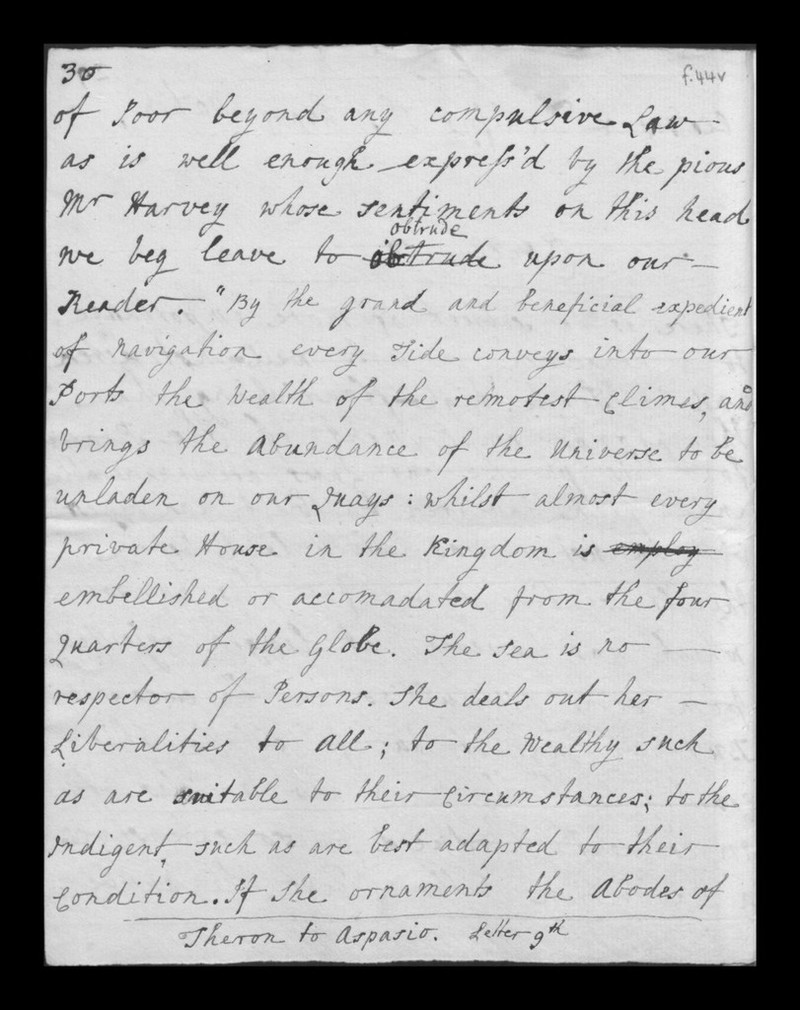 30
f.44v
of Poor beyond any compulsive Law
as is well enough express'd by the pious
Mr Harvey whose sentiments on this head
obtrude
we beg leave to obtrude upon our —
Reader. "By the grand and beneficial expedient
of navigation every Tide conveys into our
Ports the Wealth of the remotest Climes, and
brings the Abundance of the Universe to be
unladen on our Quays: whilst almost every
private House in the Kingdom is employ
embellished or accomadated from the four
Quarters of the Globe. The Sea is no —
respector of Persons. She deals out her —
Liberalities to all; to the Wealthy such
as are suitable to their Circumstances; to the
Indigent, such as are best adapted to their
Condition. If She ornaments the Abodes of
Theron to Aspasio. Letter 9th